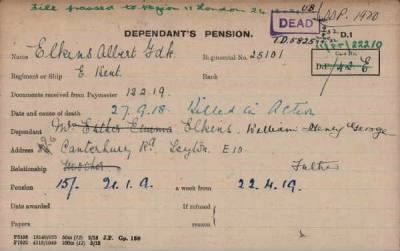 File passed to Region 11 London
DEAD
SSP. 1920
DEPENDANT'S PENSION.
D.1
Name Elkins Albert Fdk.
Regimental No. 25101
Regiment or Ship E Kent.
Documents received from Paymaster 13 2 19.
Date and cause of death 27.9.18. Killed in Action
Dependant Mrs Esther Emma Elkins, William Henry George
Address Canterbury Rd Leyton E10.
Relationship Mother Father
Pension 15/- 21.1.19. a week from 22.4.19.
Date awarded
Papers if refused reason
J.P. Gp. 158